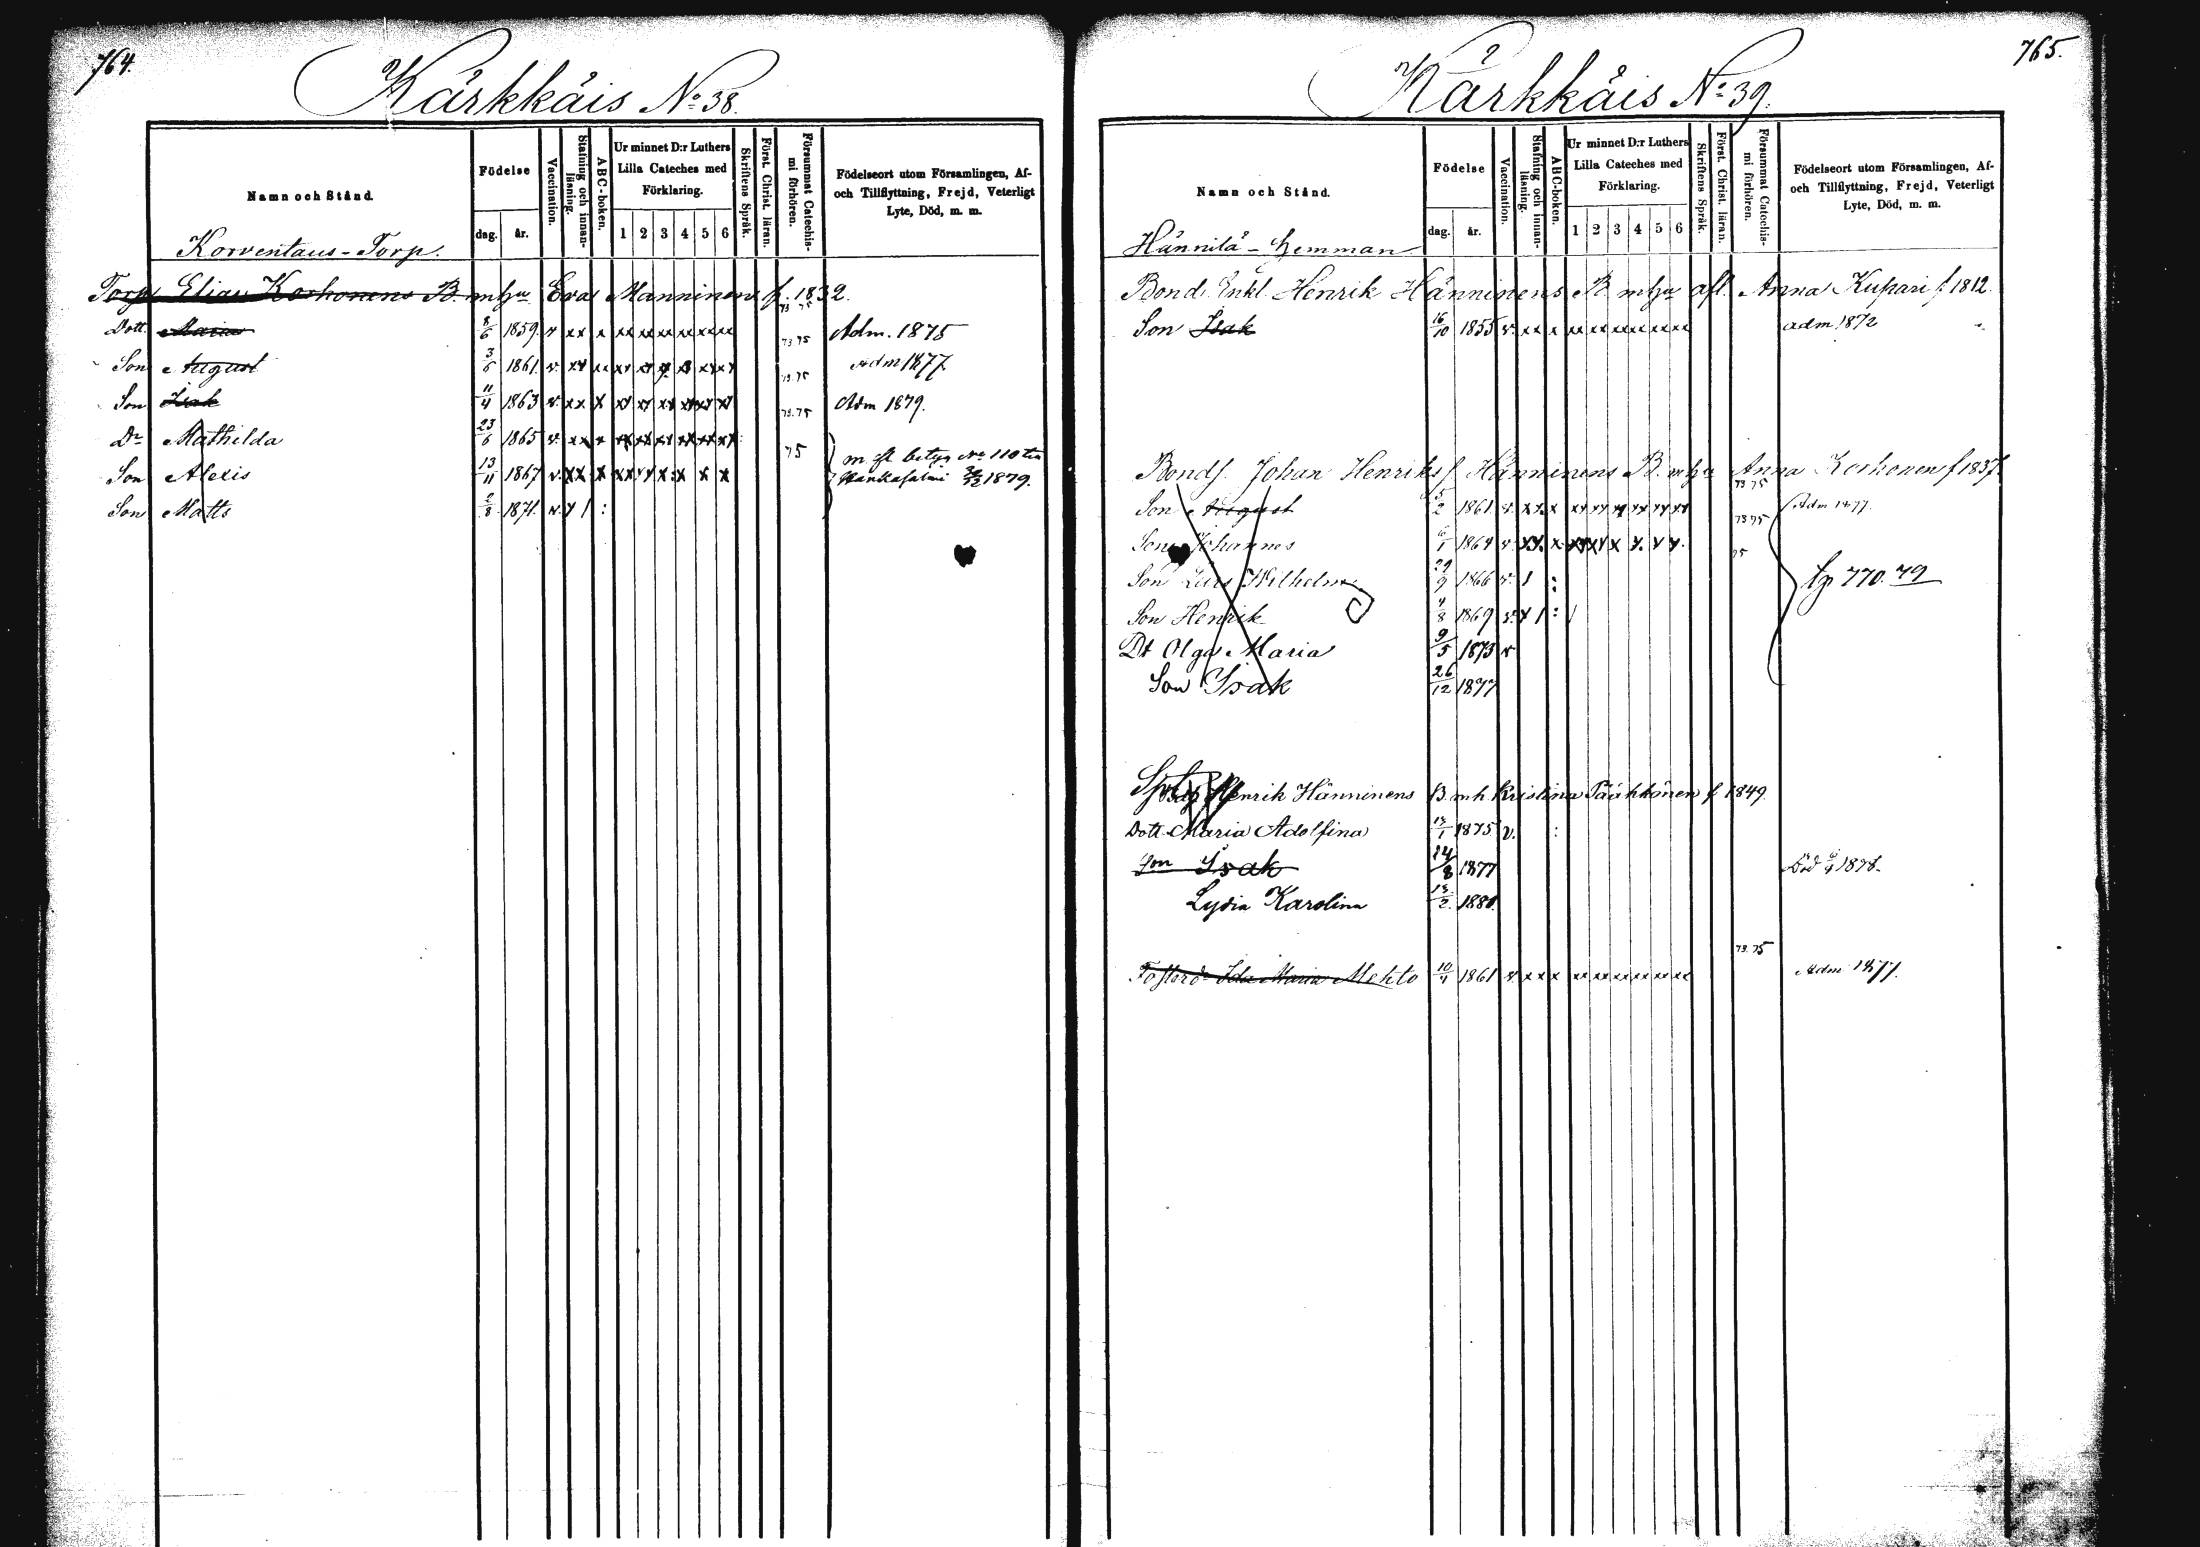 764.
Kärkkäis No 38.
Namn och Stånd.
Födelse
dag. år.
Vaccination.
Stafning och innanläsning.
ABC-boken.
Ur minnet D:r Luthers
Lilla Cateches med
Förklaring.
1 2 3 4 5 6
Skriftens Språk.
Först. Christ. läran.
Försummat Catechismi förhören.
Födelseort utom Församlingen, Af-
och Tillflyttning, Frejd, Veterligt
Lyte, Död, m. m.
Korventaus-Torp.
Torp. Elias Korhonens B. mhu Eva Manninen f. 1832.
Dott. Maria 8/6 1859. v xx x xx xx xx xx xx xx 73 75 Adm. 1875
Son August 3/6 1861. v. 73 75 Adm 1877
Son Isak 11/4 1863 v. xx x 73. 75 Adm 1879.
Dr Mathilda 23/6 1865 v. xx x 73. 75
Son Alexis 13/11 1867 v. xx x 75 m. fl. betyg No 110 till Hankasalmi 1879.
Son Matts 2/8 1871. v.
765.
Kärkkäis No 39.
Namn och Stånd.
Födelse
dag. år.
Vaccination.
Stafning och innanläsning.
ABC-boken.
Ur minnet D:r Luthers
Lilla Cateches med
Förklaring.
1 2 3 4 5 6
Skriftens Språk.
Först. Christ. läran.
Försummat Catechismi förhören.
Födelseort utom Församlingen, Af-
och Tillflyttning, Frejd, Veterligt
Lyte, Död, m. m.
Hännilä-hemman
Bond. Enkl. Henrik Hänninens B mhu afl. Anna Kupari f 1812.
Son Isak 16/10 1855 v. xx x xx xx xx xx xx xx adm 1872
Bonds. Johan Henriks f Hänninens B. mhu Anna Korhonen f 1837.
Son August 5/2 1861 v. xx. x 73 75 Adm 1877.
Son Johannes 6/1 1864 v. 73 75
Son Wilhelm 29/9 1866 v. 75 tp 770. 79
Son Henrik 4/8 1869 v.
Dt Olga Maria 9/5 1873 v
Son Isak 26/12 1877
Henrik Hänninens B. mh. Kristina Pääkkönen f 1849.
Dott Maria Adolfina 13/1 1875 v.
Son Isak 14/8 1877 Död 1878.
Lydia Karolina 13/2. 1880.
Fosterd. Ida Maria Mehto 10/4 1861 v. xx x xx xx xx xx xx xx 73. 75 Adm 1877.